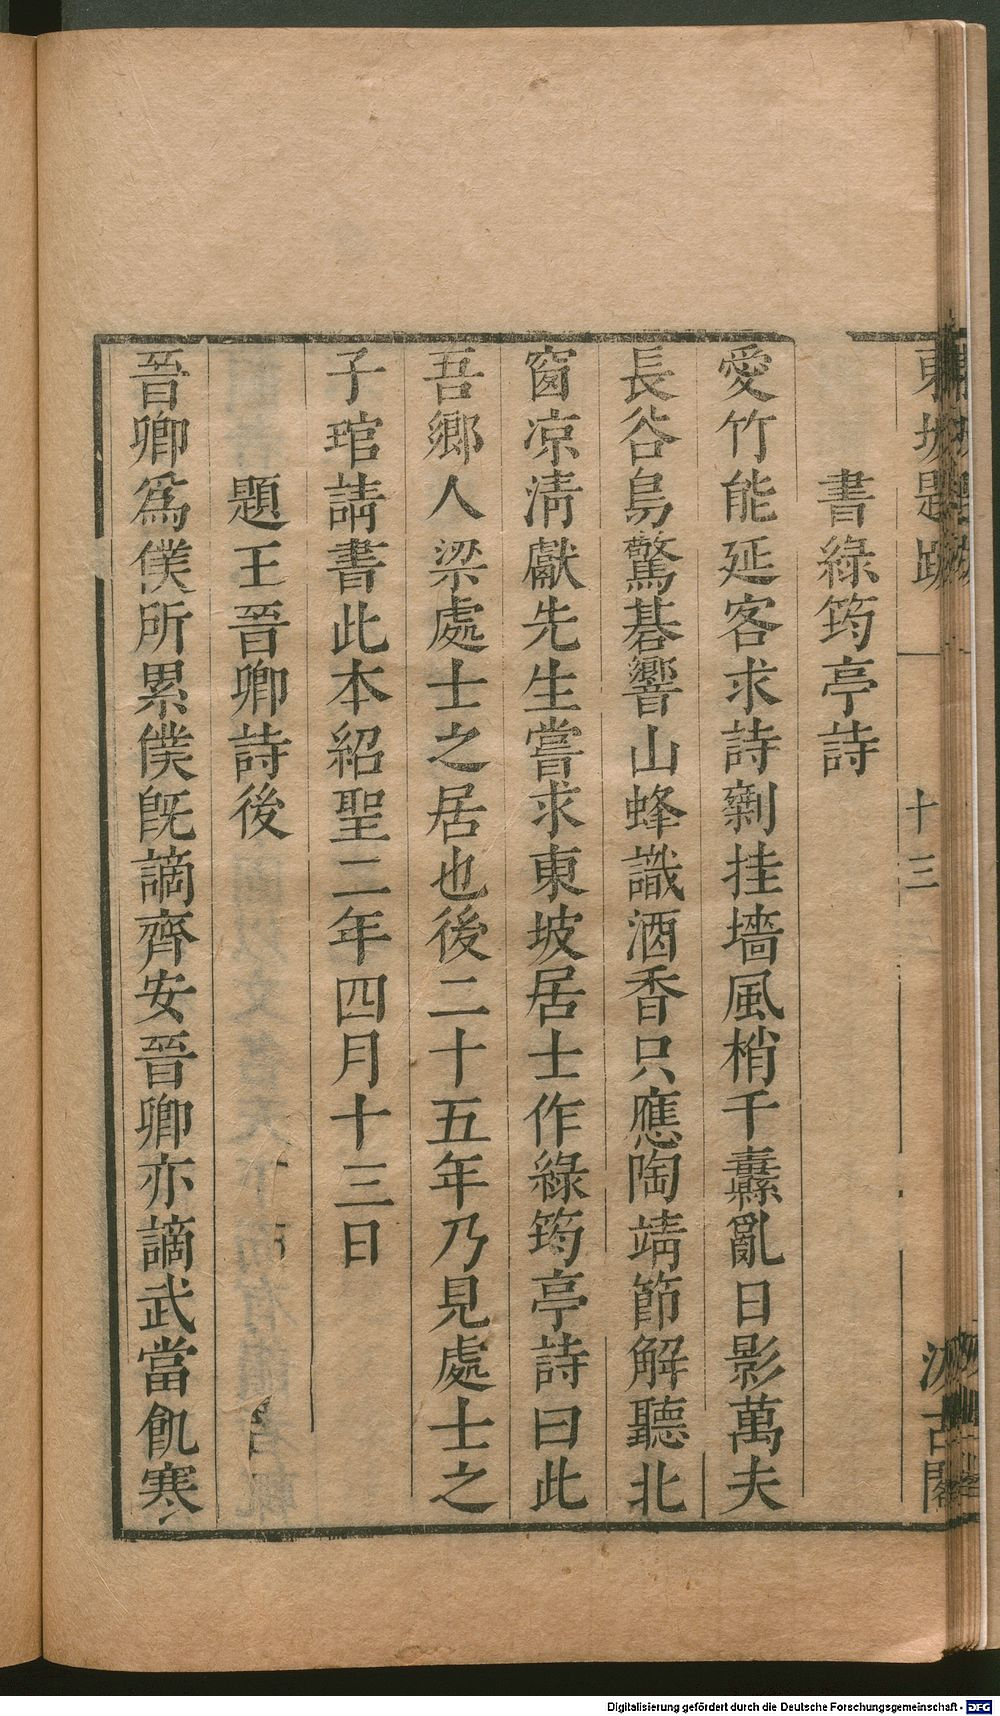 東坡題跋 十三 汲古閣
書綠筠亭詩
愛竹能延客求詩剩挂墻風梢千纛亂日影萬夫
長谷鳥驚碁響山蜂識酒香只應陶靖節解聽北
窗凉清獻先生嘗求東坡居士作綠筠亭詩曰此
吾鄉人梁處士之居也後二十五年乃見處士之
子琯請書此本紹聖二年四月十三日
題王晉卿詩後
晉卿爲僕所累僕旣謫齊安晉卿亦謫武當飢寒
Digitalisierung gefördert durch die Deutsche Forschungsgemeinschaft - DFG